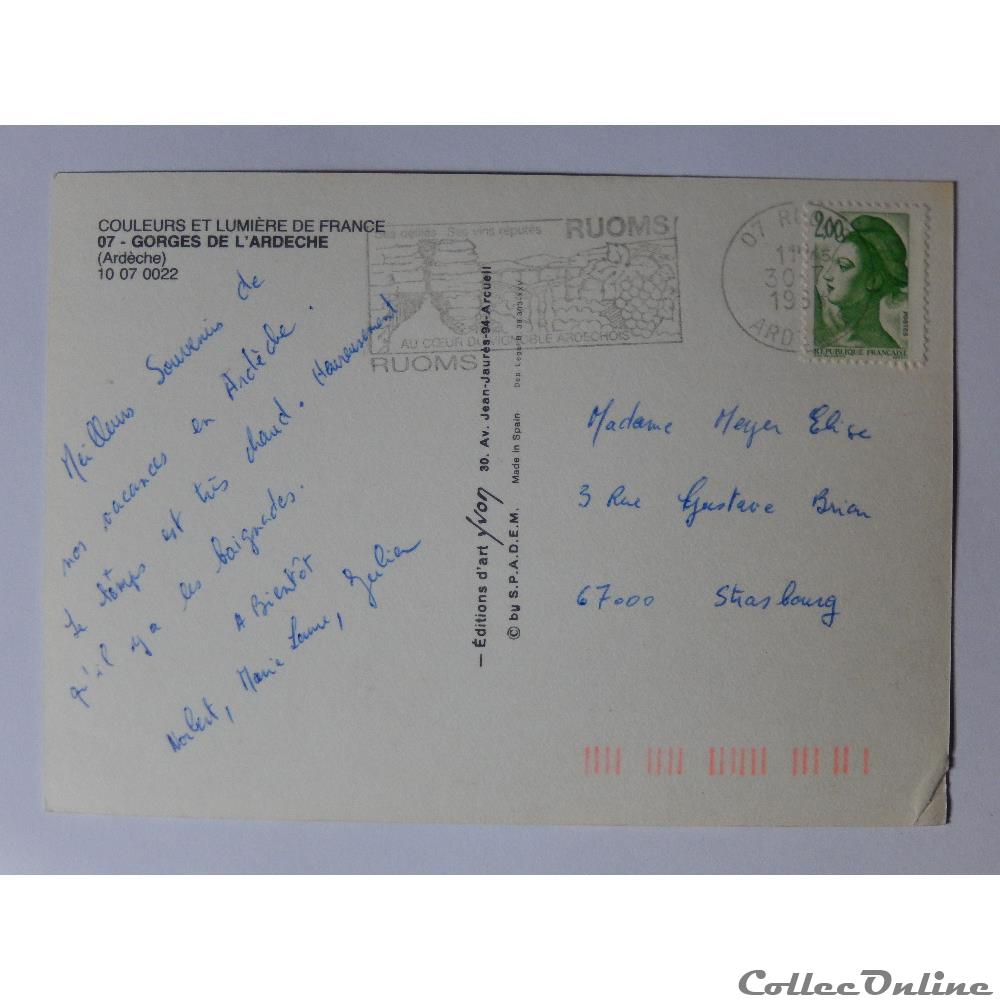 COULEURS ET LUMIÈRE DE FRANCE
07 - GORGES DE L'ARDECHE
(Ardèche)
10 07 0022
Meilleurs Souvenirs de
nos vacances en Ardèche.
Le temps est très chaud. Heureusement
qu'il y a les baignades.
A Bientôt
Norbert, Marie Laure, Julien
— Éditions d'art Yvon 30. Av. Jean-Jaurès-94-Arcueil
© bu S.P.A.D.E.M. Made in Spain
Ses vins réputés RUOMS
AU CŒUR DU VIGNOBLE ARDECHOIS
RUOMS
07
30
ARD
2,00
POSTES
RÉPUBLIQUE FRANÇAISE
Madame Meyer Elise
3 Rue Gustave Brion
67000 Strasbourg
CollecOnline